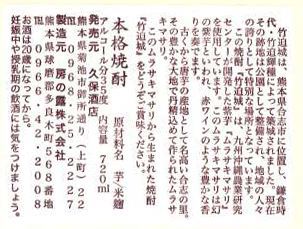 竹迫城は、熊本県合志市に位置し、鎌倉時
代、竹迫輝種によって築城されました。現在
その跡地は公園として整備され、地域の人々
の誇りとして特別な場所となっています。
この焼酎「竹迫城」は、九州沖縄農業研究
センターが開発した紫芋「ムラサキマサリ」
を使用しています。このムラサキマサリは幻
の紫芋といわれ、赤ワインのような豊かな香
りを奏でます。
古くから唐芋の産地として名高い合志の里。
その豊かな大地で丹精込めて作られたムラサ
キマサリ。
このムラサキマサリから生まれた焼酎
「竹迫城」をどうぞご賞味ください。
本格焼酎
原材料名 芋・米麹
アルコール分35度 内容量 720ml
発売元 久保酒店
熊本県菊池市御所通り(上町)22
☎0968・25・2257
製造元 房の露株式会社
熊本県球磨郡多良木町568番地
☎0966・42・2008
お酒は20歳になってから。
妊娠中や授乳期の飲酒には気をつけましょう。